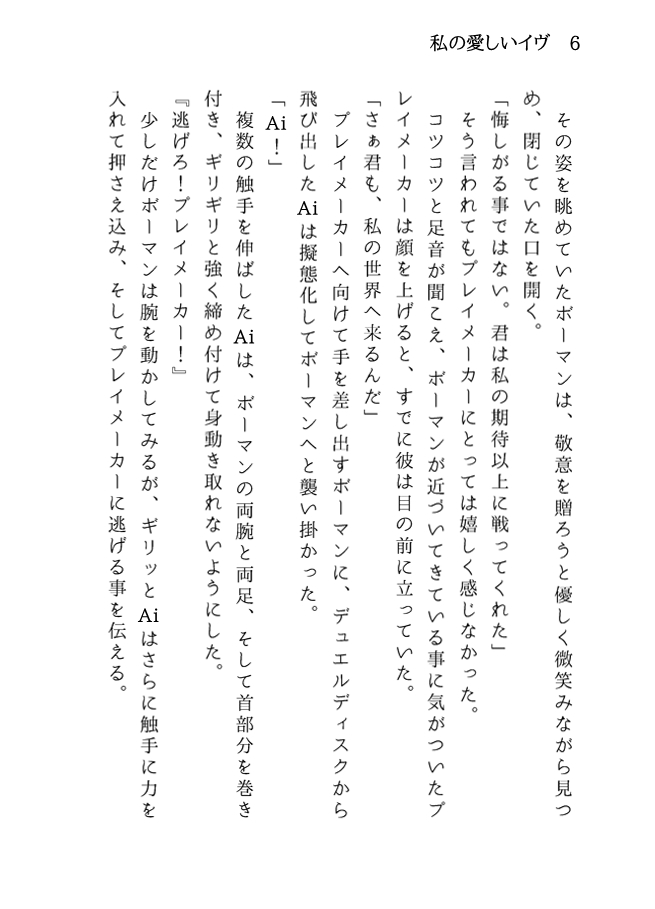 私の愛しいイヴ　6
　その姿を眺めていたボーマンは、敬意を贈ろうと優しく微笑みながら見つ
め、閉じていた口を開く。
「悔しがる事ではない。君は私の期待以上に戦ってくれた」
　そう言われてもプレイメーカーにとっては嬉しく感じなかった。
　コツコツと足音が聞こえ、ボーマンが近づいてきている事に気がついたプ
レイメーカーは顔を上げると、すでに彼は目の前に立っていた。
「さぁ君も、私の世界へ来るんだ」
　プレイメーカーへ向けて手を差し出すボーマンに、デュエルディスクから
飛び出したAiは擬態化してボーマンへと襲い掛かった。
「Ai！」
　複数の触手を伸ばしたAiは、ボーマンの両腕と両足、そして首部分を巻き
付き、ギリギリと強く締め付けて身動き取れないようにした。
『逃げろ！プレイメーカー！』
　少しだけボーマンは腕を動かしてみるが、ギリッとAiはさらに触手に力を
入れて押さえ込み、そしてプレイメーカーに逃げる事を伝える。